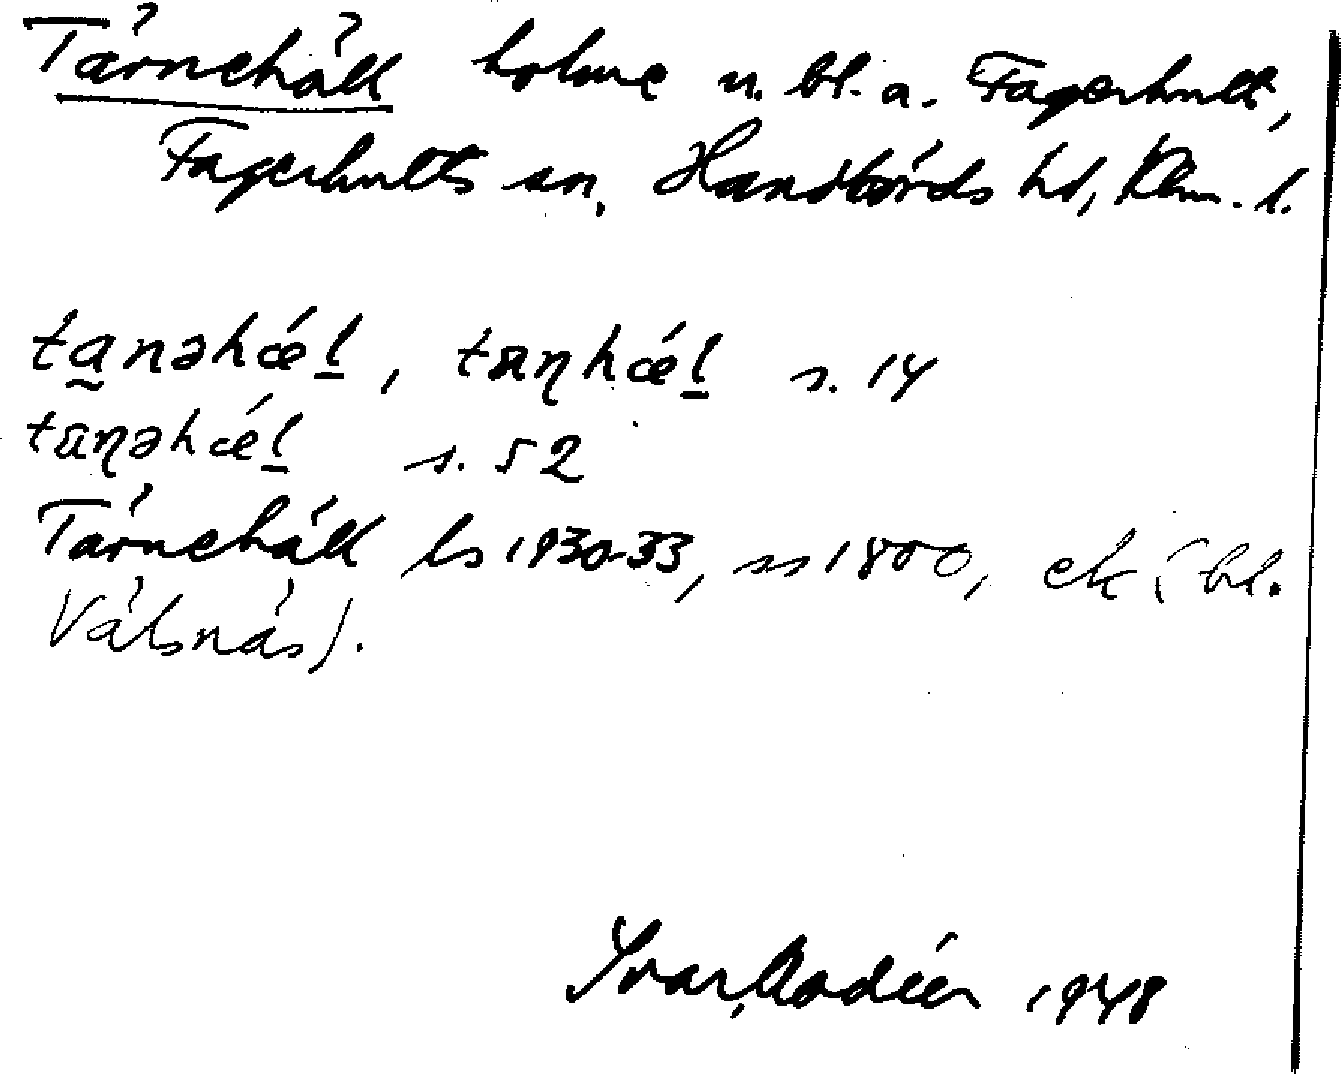 Tårnehåll holme u. bl. a. Fagerhult,
Fagerhults sn, Handbörds hd, Klm. l.
ta̰nəhǽl̲, tɑɳhǽl̲ s. 14
tɑɳəhǽl̲ s. 52
Tårnehåll ls 1930-33, ss 1800, ek (bl.
Välsnäs).
Ivar Modéer 1948